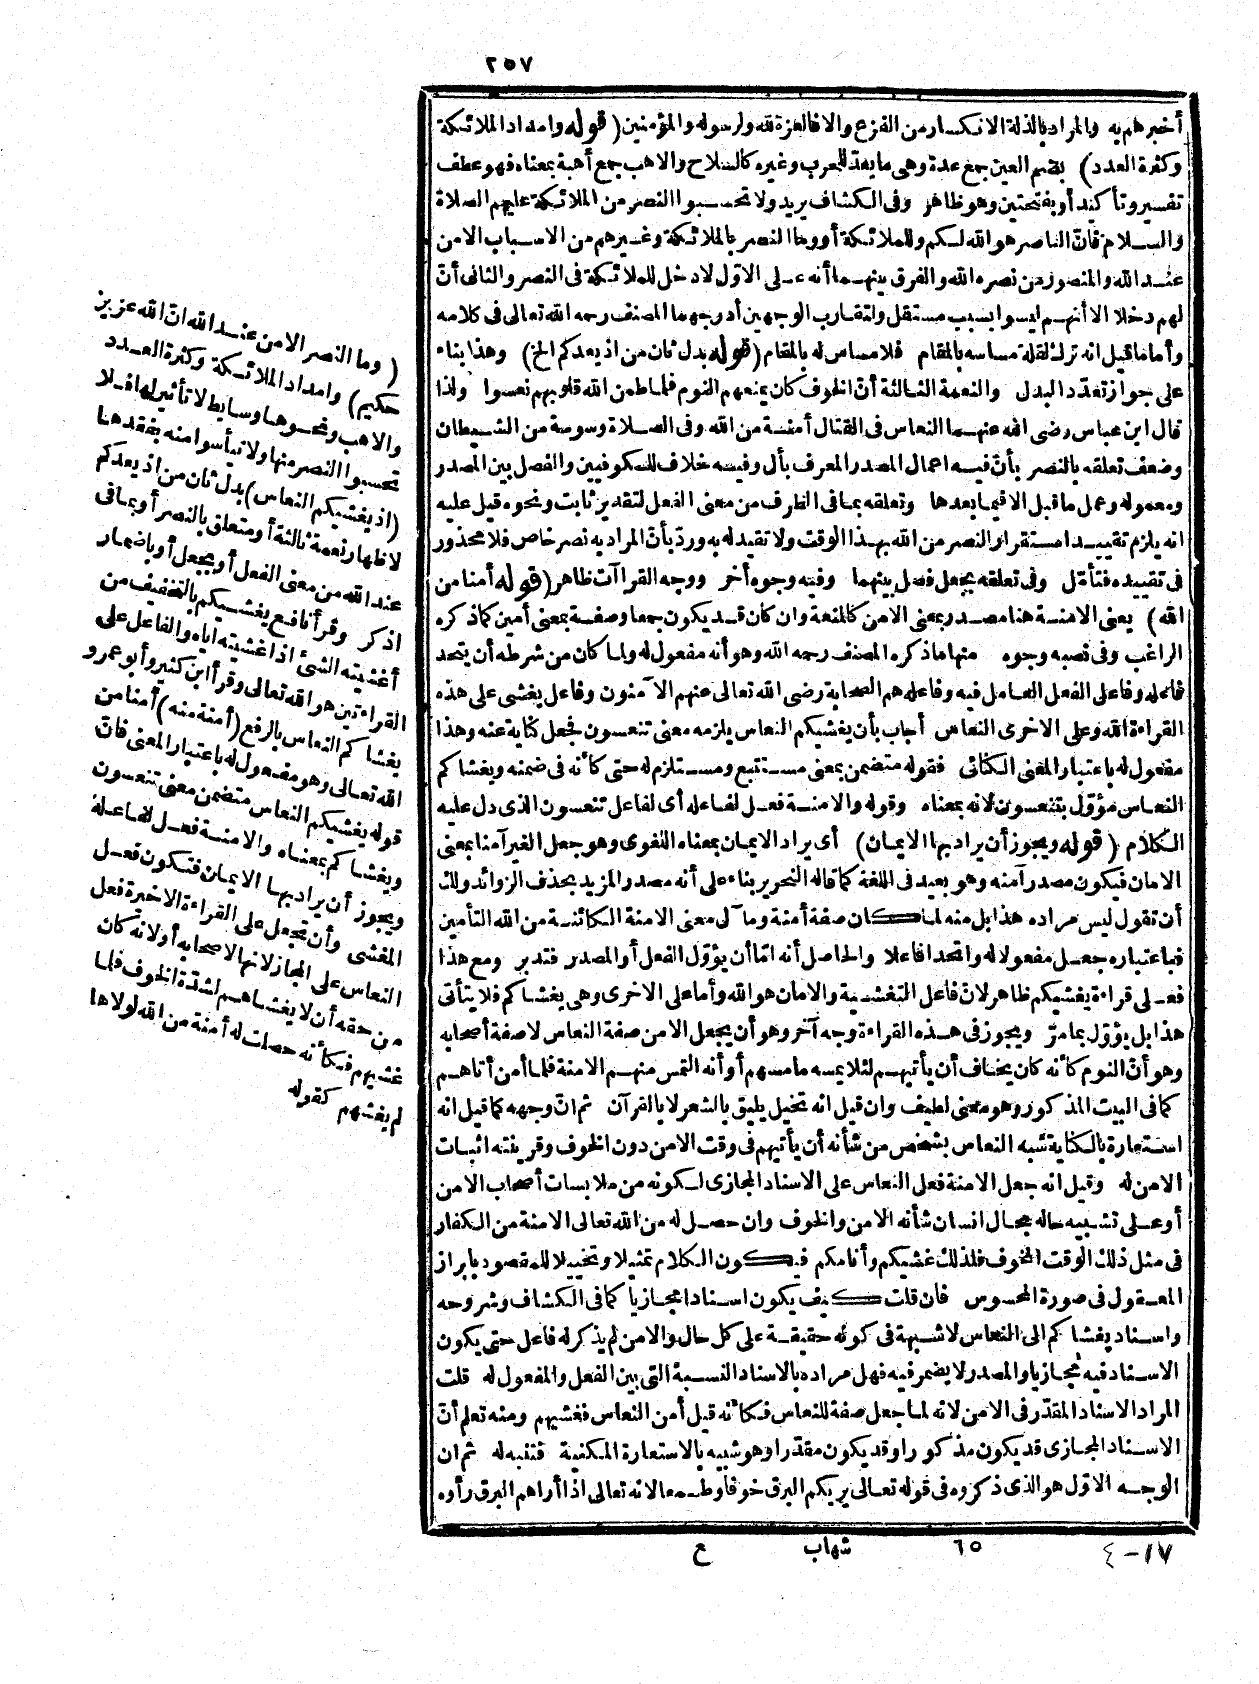 ٢٥٧
أخبرهم به والمراد بالذلة الانكسار من الفزع والا فالعزة لله ولرسوله والمؤمنين (قوله وامداد الملائكة
وكثرة العدد) بضم العين جمع عدة وهى ما يعدّ للحرب وغيره كالسلاح والاهب جمع أهبة بمعناه فهو عطف
تفسير وتأكيد أو بفتحتين وهو ظاهر وفى الكشاف يريد ولا تحسبوا النصر من الملائكة عليهم الصلاة
والسلام فانّ الناصر هو الله لكم وللملائكة أو وما النصر بالملائكة وغيرهم من الاسباب الا من
عند الله والمنصور من نصره الله والفرق بينهما أنه على الاوّل لا دخل للملائكة فى النصر والثانى أنّ
لهم دخلا الا أنهم ليسوا بسبب مستقل ولتقارب الوجهين أدرجهما المصنف رحمه الله تعالى فى كلامه
وأما ما قيل انه ترك لقلة مساسه بالمقام فلا مساس له بالمقام (قوله بدل ثان من اذ يعدكم الخ) وهذا بناء
على جواز تعدّد البدل والنعمة الثالثة أنّ الخوف كان يمنعهم النوم فلما طمن الله قلوبهم نعسوا ولذا
قال ابن عباس رضى الله عنهما النعاس فى القتال أمنة من الله وفى الصلاة وسوسة من الشيطان
وضعف تعلقه بالنصر بأنّ فيه اعمال المصدر المعرف بأل وفيه خلاف للكوفيين والفصل بين المصدر
ومعموله وعمل ما قبل الا فيما بعدها وتعلقه بما فى الظرف من معنى الفعل لتقدير ثابت ونحوه قيل عليه
انه يلزم تقييد استقرار النصر من الله بهذا الوقت ولا تقيد له به وردّ بأنّ المراد به نصر خاص فلا محذور
فى تقييده فتأمّل وفى تعلقه بجعل فصل بينهما وفيه وجوه أخر ووجه القراآت ظاهر (قوله أمنا من
الله) يعنى الامنة هنا مصدر بمعنى الامن كالمنعة وان كان قد يكون جمعا وصفة بمعنى أمين كما ذكره
الراغب وفى نصبه وجوه منها ما ذكره المصنف رحمه الله وهو أنه مفعول له ولما كان من شرطه أن يتحد
فاعله وفاعل الفعل العامل فيه وفاعله هم الصحابة رضى الله تعالى عنهم الآمنون وفاعل يغشى على هذه
القراءة الله وعلى الاخرى النعاس أجاب بأن يغشيكم النعاس يلزمه معنى تنعسون فجعل كناية عنه وهذا
مفعول له باعتبار المعنى الكنائى فقوله متضمن بمعنى مستتبع ومستلزم له حتى كأنه فى ضمنه ويغشاكم
النعاس مؤوّل بتنعسون لانه بمعناه وقوله والامنة فعل لفاعله أى لفاعل تنعسون الذى دل عليه
الكلام (قوله ويجوز أن يراد بها الايمان) أى يراد الايمان بمعناه اللغوى وهو جعل الغير آمنا بمعنى
الامان فيكون مصدر آمنه وهو بعيد فى اللغة كما قاله النحرير بناء على أنه مصدر المزيد بحذف الزوائد ولك
أن تقول ليس مراده هذا بل منه لما كان صفة أمنة ومآل معنى الامنة الكائنة من الله التأمين
فباعتباره جعل مفعولا له واتحدا فاعلا والحاصل أنه امّا أن يؤوّل الفعل أو المصدر فتدبر ومع هذا
فعلى قراءة يغشيكم ظاهر لانّ فاعل التغشية والامان هو الله وأما على الاخرى وهى يغشاكم فلا يتأتى
هذا بل يؤوّل بما مرّ ويجوز فى هذه القراءة وجه آخر وهو أن يجعل الامن صفة النعاس لا صفة أصحابه
وهو أنّ النوم كأنه كان يخاف أن يأتيهم لئلا يمسه ما مسهم أو أنه التمس منهم الامنة فلما أمن أتاهم
كما فى البيت المذكور وهو معنى لطيف وان قيل انه تخيل يليق بالشعر لا بالقرآن ثم انّ وجهه كما قيل انه
استعارة بالكناية شبه النعاس بشخص من شأنه أن يأتيهم فى وقت الامن دون الخوف وقرينته اثبات
الامن له وقيل انه جعل الامنة فعل النعاس على الاسناد المجازى لكونه من ملابسات أصحاب الامن
أو على تشبيه حاله بحال انسان شأنه الامن والخوف وان حصل له من الله تعالى الامنة من الكفار
فى مثل ذلك الوقت المخوف فلذلك غشيكم وأنامكم فيكون الكلام تمثيلا وتخييلا للمقصود بابراز
المعقول فى صورة المحسوس فان قلت كيف يكون اسنادا مجازيا كما فى الكشاف وشروحه
واسناد يغشاكم الى النعاس لا شبهة فى كونه حقيقة على كل حال والامن لم يذكر له فاعل حتى يكون
الاسناد فيه مجازيا والمصدر لا يضمر فيه فهل مراده بالاسناد النسبة التى بين الفعل والمفعول له قلت
المراد الاسناد المقدّر فى الامن لانه لما جعل صفة للنعاس فكأنه قيل أمن النعاس فغشيهم ومنه تعلم أنّ
الاسناد المجازى قد يكون مذكورا وقد يكون مقدّرا وهو شبيه بالاستعارة المكنية فتنبه له ثم ان
الوجه الاوّل هو الذى ذكروه فى قوله تعالى يريكم البرق خوفا وطمعا لانه تعالى اذا أراهم البرق رأوه
(وما النصر الا من عند الله انّ الله عزيز
حكيم) وامداد الملائكة وكثرة العدد
والاهب ونحوها وسايط لا تأثير لها فلا
تحسبوا النصر منها ولا تيأسوا منه بفقدها
(اذ يغشيكم النعاس) بدل ثان من اذ يعدكم
لاظهار نعمة ثالثة أو متعلق بالنصر أو بما فى
عند الله من معنى الفعل أو بجعل أو باضمار
اذكر وقرأ نافع يغشيكم بالتخفيف من
أغشيته الشئ اذا غشيته اياه والفاعل على
القراءتين هو الله تعالى وقرأ ابن كثير وأبو عمرو
يغشاكم النعاس بالرفع (أمنة منه) أمنا من
الله تعالى وهو مفعول له باعتبار المعنى فانّ
قوله يغشيكم النعاس متضمن معنى تنعسون
ويغشاكم بمعناه والامنة فعل لفاعله
ويجوز أن يراد بها الايمان فتكون فعل
المغشى وأن تجعل على القراءة الاخيرة فعل
النعاس على المجاز لانها لاصحابه أو لانه كان
من حقه أن لا يغشاهم لشدّة الخوف فلما
غشيهم فكأنه حصلت له أمنة من الله لولاها
لم يغشهم كقوله
١٧-٤ ٦٥ شهاب ع